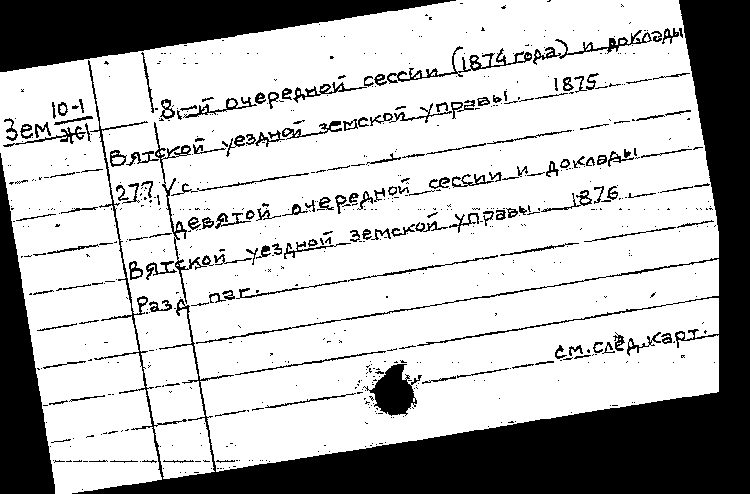 10-1
Зем Ж61
8-й очередной сессии (1874 года) и доклады
Вятской уездной земской управы. 1875.
277, V с.
девятой очередной сессии и доклады
Вятской уездной земской управы. 1876.
Разд паг.
см. след. карт.